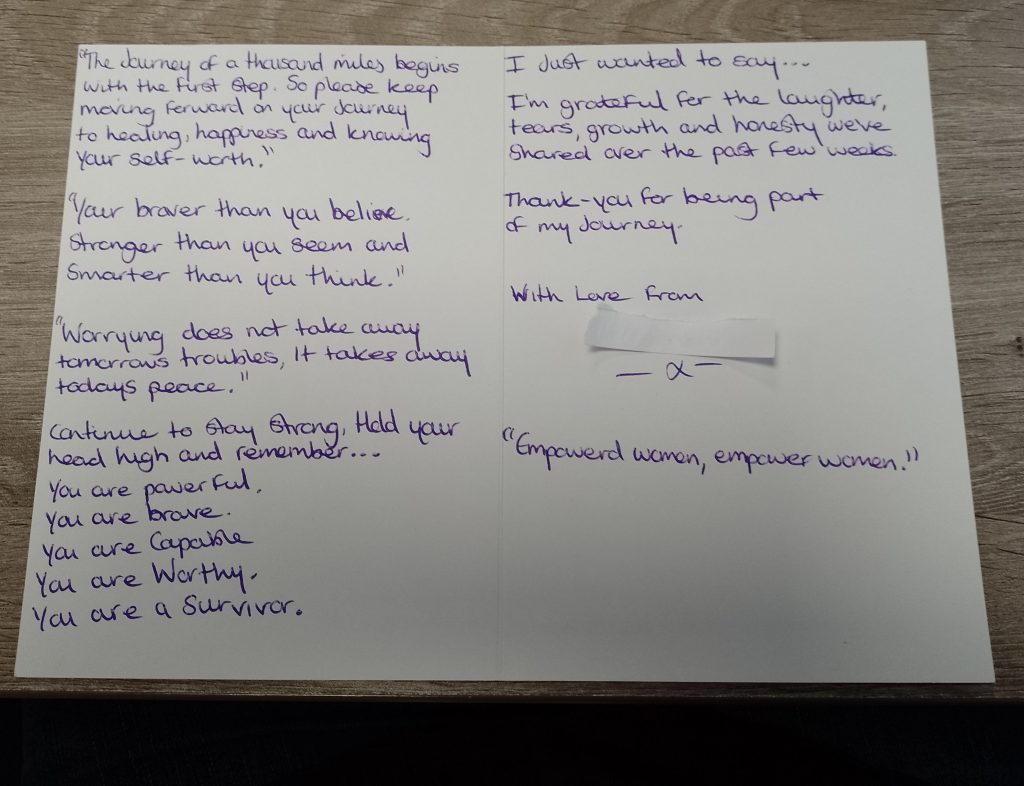 "The Journey of a thousand miles begins
with the first step. So please keep
moving forward on your Journey
to healing, happiness and knowing
your self-worth."
"Your braver than you believe.
Stronger than you seem and
Smarter than you think."
"Worrying does not take away
tomorrows troubles, It takes away
todays peace."
Continue to stay strong, Hold your
head high and remember...
You are powerful.
You are brave.
You are Capable
You are Worthy.
You are a Survivor.
I Just wanted to say...
I'm grateful for the laughter,
tears, growth and honesty we've
Shared over the past few weeks.
Thank-you for being part
of my Journey.
With Love From
- x -
"Empowerd women, empower women."